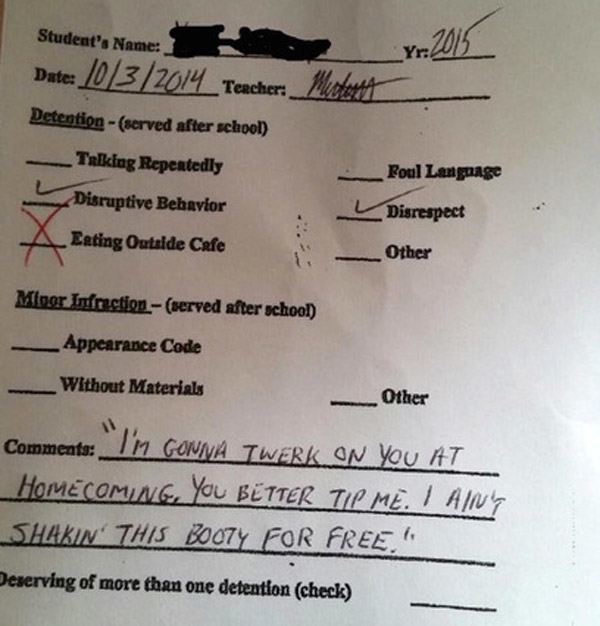 Student's Name:
Yr: 2015
Date: 10/3/2014 Teacher:
Detention - (served after school)
Talking Repeatedly
Foul Language
Disruptive Behavior
Disrespect
Eating Outside Cafe
Other
Minor Infraction - (served after school)
Appearance Code
Without Materials
Other
Comments: "I'm GONNA TWERK ON YOU AT
HOMECOMING. YOU BETTER TIP ME. I AIN'T
SHAKIN' THIS BOOTY FOR FREE."
Deserving of more than one detention (check)